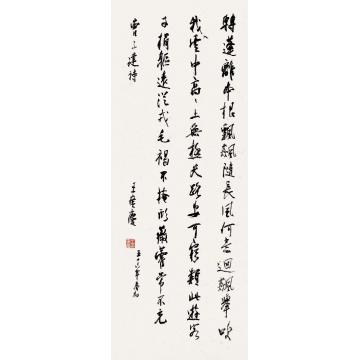 轉蓬離本根飄飄隨長風何意迴飆舉吹
我雲中高高上無極天路安可窮類此遊客
子捐軀遠從戎毛褐不掩形薇藿常不充
曹子建詩